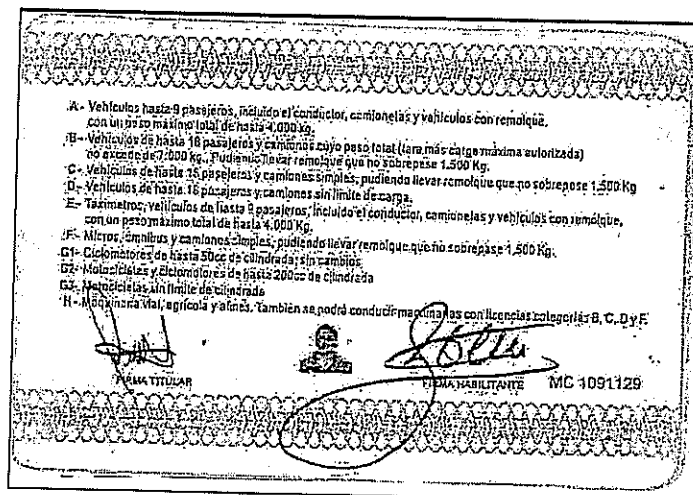 A - Vehículos hasta 9 pasajeros, incluido el conductor, camionetas y vehículos con remolque,
con un peso máximo total de hasta 4.000 kg.
B - Vehículos de hasta 18 pasajeros y camiones cuyo peso total (tara más carga máxima autorizada)
no excede de 7.000 kg., Pudiendo llevar remolque que no sobrepase 1.500 Kg.
C - Vehículos de hasta 18 pasajeros y camiones simples, pudiendo llevar remolque que no sobrepase 1.500 Kg
D - Vehículos de hasta 18 pasajeros y camiones sin límite de carga.
E - Taxímetros, vehículos de hasta 9 pasajeros, incluido el conductor, camionetas y vehículos con remolque,
con un peso máximo total de hasta 4.000 Kg.
F - Micros, ómnibus y camiones simples, pudiendo llevar remolque que no sobrepase 1.500 Kg.
G1- Ciclomotores de hasta 50cc de cilindrada, sin cambios
G2- Motocicletas y ciclomotores de hasta 200cc de cilindrada
G3- Motocicletas sin límite de cilindrada
H - Maquinaria vial, agrícola y afines. También se podrá conducir maquinarias con licencias categorías B, C, D y F.
FIRMA TITULAR
FIRMA HABILITANTE MC 1091129